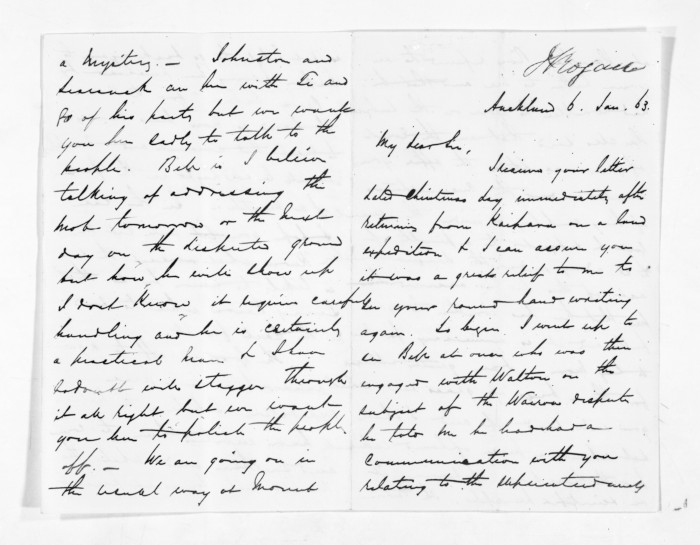 J Rogan
Auckland 6. Jan. 63.
My dear Sir,
I received your letter
dated Christmas day immediately after
returning from Kaipara on a land
expedition & I can assure you
it was a great relief to me to
see your round hand writing
again. To begin I went up to
see Bell at once who was then
engaged with Walton on the
subject of the Wairoa dispute
he told me he had had a
communication with you
relating to the Superintendency
a mystery. — Johnston and
are here with Te and
80 of his party but we want
you here sadly to talk to the
people. Bell is I believe
talking of addressing the
mob tomorrow or the next
day on the disputed ground
but how he will show up
I dont know it requires careful
handling and he is certainly
a practical man & I have
will stagger through
it all right but we want
you here to polish the people
off. — We are going on in
the usual way at Mount